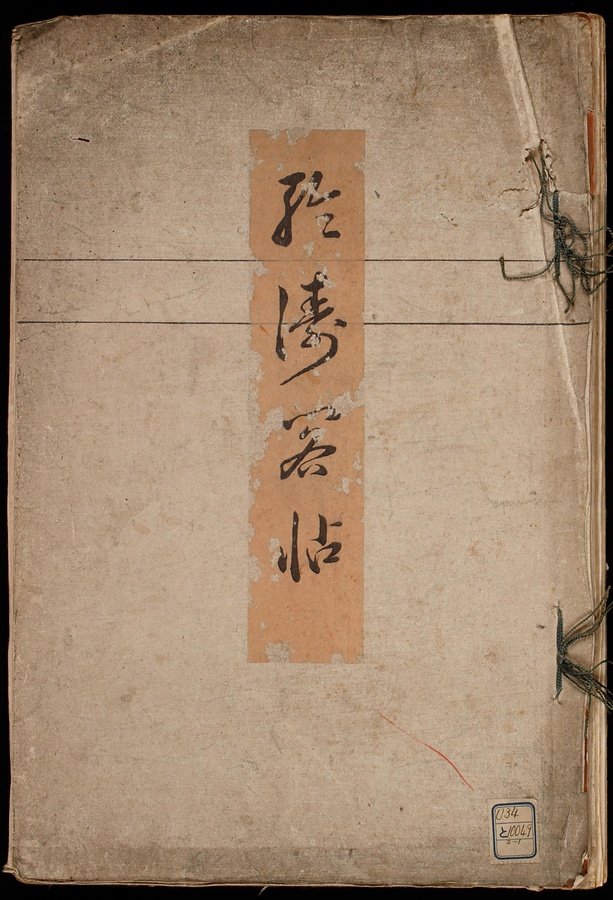 聆濤閣帖
U34
と10049
2-1